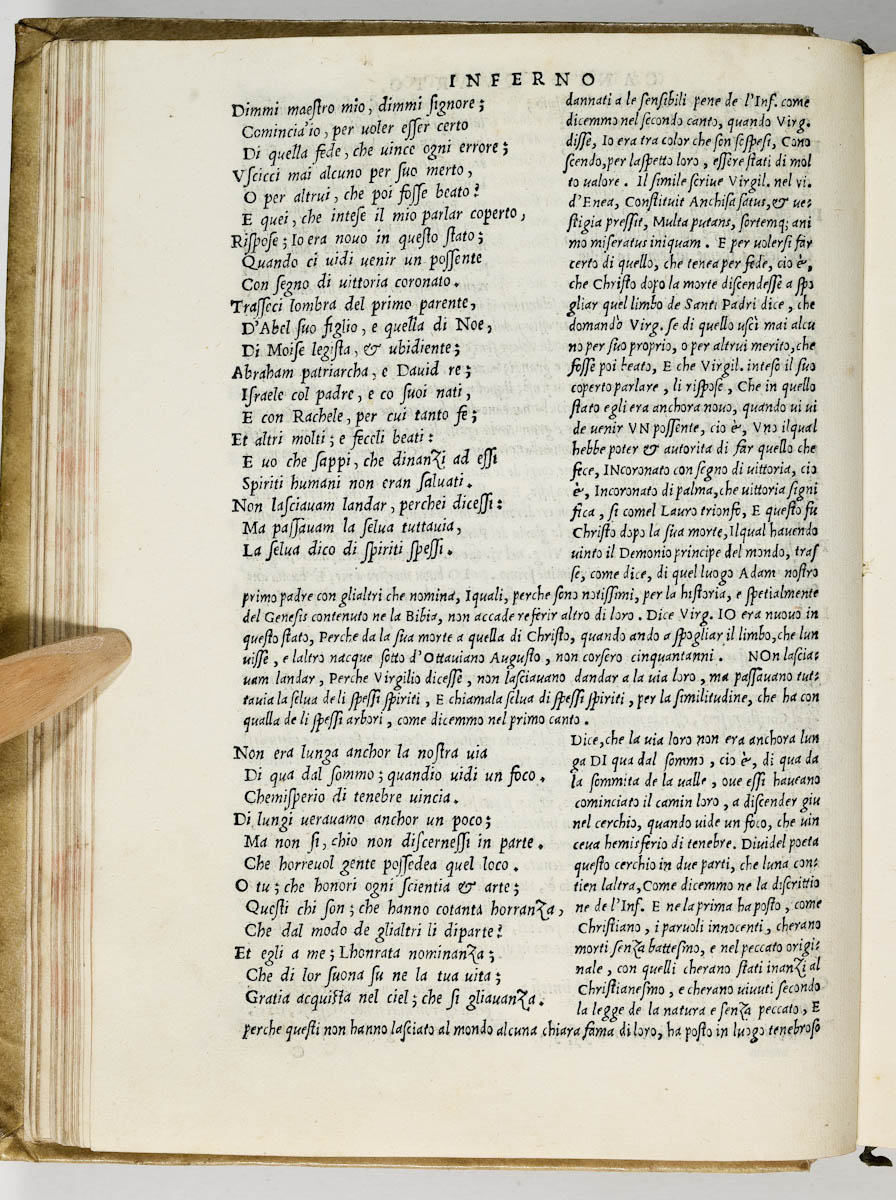 INFERNO
Dimmi maestro mio, dimmi signore;
Comincia'io, per uoler esser certo
Di quella fede, che uince ogni errore;
Vscicci mai alcuno per suo merto,
O per altrui, che poi fosse beato?
E quei, che intese il mio parlar coperto,
Rispose; Io era nouo in questo stato;
Quando ci uidi uenir un possente
Con segno di uittoria coronato.
Trasseci lombra del primo parente,
D'Abel suo figlio, e quella di Noe,
Di Moise legista, & ubidiente;
Abraham patriarcha, e Dauid re;
Israele col padre, e co suoi nati,
E con Rachele, per cui tanto fe;
Et altri molti; e feccli beati:
E uo che sappi, che dinanzi ad essi
Spiriti humani non eran saluati.
Non lasciauam landar, perchei dicessi:
Ma passauam la selua tuttauia,
La selua dico di spiriti spessi.
dannati a le sensibili pene de l'Inf. come
dicemmo nel secondo canto, quando Virg.
disse, Io era tra color che son sespesi, Cono
scendo, per laspetto loro, essere stati di mol
to ualore. Il simile scriue Virgil. nel vi.
d'Enea, Constituit Anchisa satus, & ue-
stigia pressit, Multa putans, sortemq; ani
mo miseratus iniquam. E per uolersi far
certo di quello, che tenea per fede, cio è,
che Christo dopo la morte discendesse a spo
gliar quel limbo de Santi Padri dice, che
domandò Virg. se di quello uscì mai alcu
no per suo proprio, o per altrui merito, che
fosse poi beato, E che Virgil. inteso il suo
coperto parlare, li rispose, Che in quello
stato egli era anchora nouo, quando ui ui
de uenir VN possente, cio è, Vno ilqual
hebbe poter & autorita di far quello che
fece, INcoronato con segno di uittoria, cio
è, Incoronato di palma, che uittoria signi
fica, si comel Lauro trionfo, E questo fu
Christo dopo la sua morte, Ilqual hauendo
uinto il Demonio principe del mondo, tras
se, come dice, di quel luogo Adam nostro
primo padre con glialtri che nomina, Iquali, perche sono notissimi, per la historia, e spetialmente
del Genesis contenuto ne la Bibia, non accade referir altro di loro. Dice Virg. IO era nuouo in
questo stato, Perche da la sua morte a quella di Christo, quando ando a spogliar il limbo, che lun
uisse, e laltro nacque sotto d'Ottauiano Augusto, non corsero cinquantanni. NOn lascia-
uam landar, Perche Virgilio dicesse, non lasciauano dandar a la uia loro, ma passauano tut-
tauia la selua de li spessi spiriti, E chiamala selua di spessi spiriti, per la similitudine, che ha con
qualla de li spessi arbori, come dicemmo nel primo canto.
Non era lunga anchor la nostra uia
Di qua dal sommo; quandio uidi un foco.
Chemisperio di tenebre uincia.
Di lungi uerauamo anchor un poco;
Ma non si, chio non discernessi in parte.
Che horreuol gente possedea quel loco.
O tu; che honori ogni scientia & arte;
Questi chi son; che hanno cotanta horranza,
Che dal modo de glialtri li diparte?
Et egli a me; Lhonrata nominanza;
Che di lor suona su ne la tua uita;
Gratia acquista nel ciel; che si gliauanza.
Dice, che la uia loro non era anchora lun
ga DI qua dal sommo, cio è, di qua da
la sommita de la ualle, oue essi haueano
cominciato il camin loro, a discender giu
nel cerchio, quando uide un foco, che uin
ceua hemisferio di tenebre. Diuidel poeta
questo cerchio in due parti, che luna con-
tien laltra, Come dicemmo ne la discrittio
ne de l'Inf. E ne la prima ha posto, come
Christiano, i paruoli innocenti, cherano
morti senza battesmo, e nel peccato origi-
nale, con quelli cherano stati inanzi al
Christianesmo, e cherano uiuuti secondo
la legge de la natura e senza peccato, E
perche questi non hanno lasciato al mondo alcuna chiara fama di loro, ha posto in luogo tenebroso